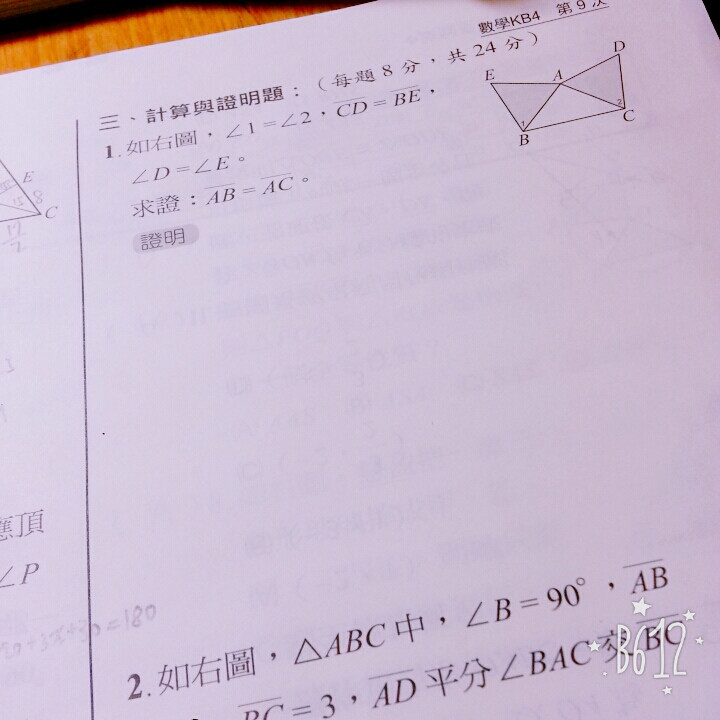 數學KB4 第9次
三、計算與證明題：（每題8分，共24分）
1.如右圖，∠1=∠2，CD=BE，
∠D=∠E。
求證：AB=AC。
證明
E
A
D
1
2
B
C
E
8
C
應頂
∠P
+30=180
2.如右圖，△ABC中，∠B=90°，AB
BC=3，AD平分∠BAC交BC
B612